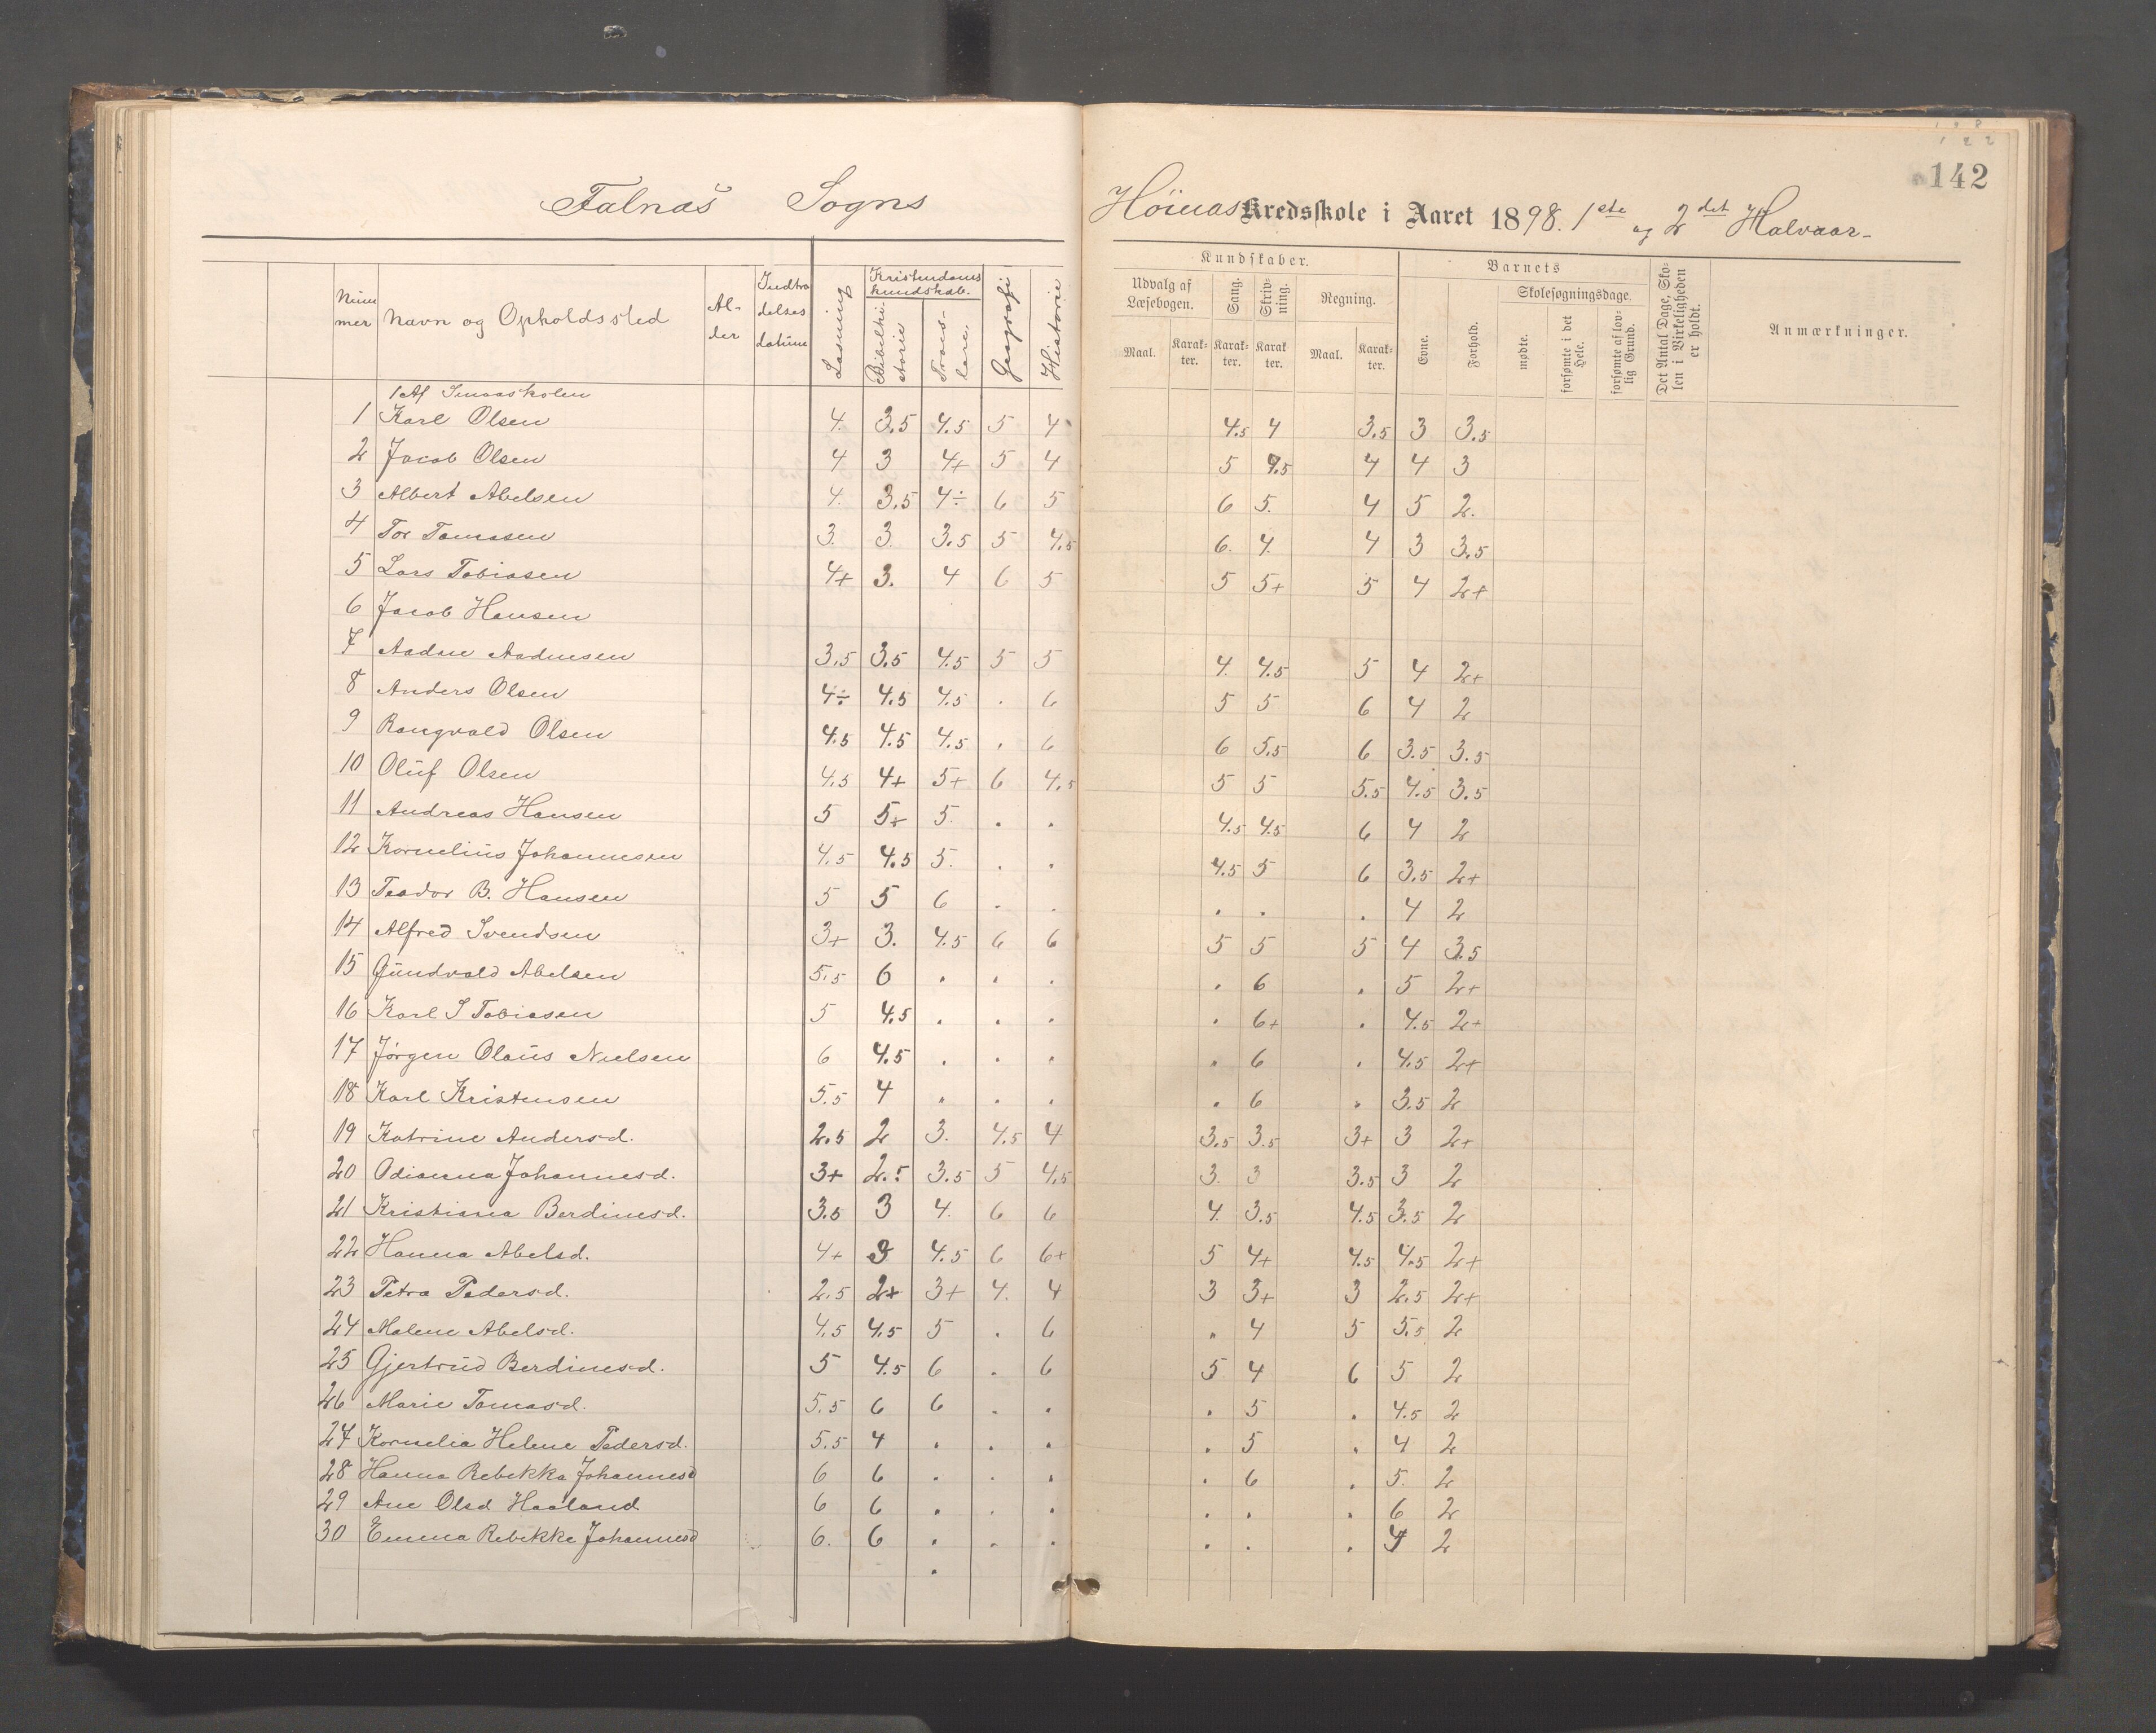 142
Falnæs Sogns Høinæs Kredsskole i Aaret 1898. 1ste og 2det Halvaar-
Kundskaber. Barnets
Num mer | Navn og Opholdssted | Al- der | Indtræ delses datum | Læsning | Kristendoms kundskab. | Bibelhi- storie | Troes- lære. | Geografi | Historie | Udvalg af Læsebogen. | Maal. | Karak- ter. | Sang. | Karak- ter. | Skriv- ning. | Karak ter. | Regning. | Maal. | Karak- ter. | Evne. | Forhold. | Skolesøgningsdage. | mødte. | forsømte i det Hele. | forsømte af lov- lig Grund. | Det Antal Dage, Sko- len i Virkeligheden er holdt. | Anmærkninger.
1 Af Smaaskolen
1 Karl Olsen 4. 3,5 4.5 5 4 4.5 4 3,5 3 3.5
2 Jacob Olsen 4 3 4+ 5 4 5 4.5 4 4 3
3 Albert Abelsen 4. 3,5 4÷ 6 5 6 5. 4 5 2.
4 Tor Tomasen 3. 3. 3.5 5 4.5 6. 4. 4 3 3.5
5 Lars Tobiasen 4+ 3. 4 6 5 5 5+ 5 4 2+
6 Jacob Hansen
7 Aadne Aadnesen 3,5 3.5 4.5 5 5 4. 4.5 5 4 2+
8 Anders Olsen 4÷ 4.5 4.5 . 6 5 5 6 4 2
9 Rangvald Olsen 4.5 4.5 4.5 . 6 6 5,5 6 3.5 3.5
10 Oluf Olsen 4.5 4+ 5+ 6 4.5 5 5 5.5 4.5 3.5
11 Andreas Hansen 5 5+ 5. . . 4.5 4.5 6 4 2
12 Kornelius Johannesen 4.5 4.5 5. . . 4.5 5 6 3.5 2+
13 Teodor B. Hansen 5 5 6 . . . . . 4 2
14 Alfred Svendsen 3+ 3. 4.5 6 6 5 5 5 4 3.5
15 Gundvald Abelsen 5.5 6 . . . . 6 . 5 2+
16 Karl S Tobiasen 5 4.5 . . . . 6+ . 4.5 2+
17 Jørgen Olaus Nielsen 6 4.5 . . . . 6 . 4.5 2+
18 Karl Kristensen 5.5 4 . . . . 6 . 3.5 2
19 Katrine Andersd. 2.5 2 3. 4.5 4 3.5 3.5 3+ 3 2+
20 Odianna Johannesd. 3+ 2.5 3.5 5 4.5 3. 3 3.5 3 2
21 Kristiana Berdinesd. 3.5 3 4. 6 6 4. 3.5 4.5 3.5 2
22 Hanna Abelsd. 4+ 3 4.5 6 6+ 5 4+ 4.5 4.5 2+
23 Petra Pedersd. 2.5 2+ 3+ 4. 4 3 3+ 3 2.5 2+
24 Malene Abelsd. 4.5 4.5 5 . 6 . 4 5 5.5 2
25 Gjertrud Berdinesd. 5 4.5 6 . 6 5 4 6 5 2
26 Marie Tomasd. 5.5 6 6 . . . 5 . 4.5 2
27 Kornelia Helene Pedersd. 5.5 4 . . . . 5 . 4 2
28 Hanna Rebekka Johannesd 6 6 . . . . 6 . 5. 2
29 Ane Olsd Haaland 6 6 . . . . . . 6 2
30 Emma Rebekka Johannesd 6. 6 . . . . . . 4 2